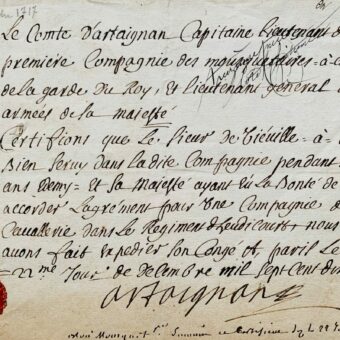 1717
Le Comte d'artaignan Capitaine Lieutenant de
premiere Compagnie des mousquettaires = a =
de la garde du Roy, et Lieutenant general
armées de sa majesté
Certifions que Le sieur de = a =
Bien seruy dans la dite Compagnie pendant
ans demy = et sa Majesté ayant eu La Bonté de
accorder Lagrément pour Vne Compagnie de
Cauallerie dans Le Regiment d'heudicourt = nous
auons fait expedier son Congé
Jour de decembre mil sept cent di
artaignan